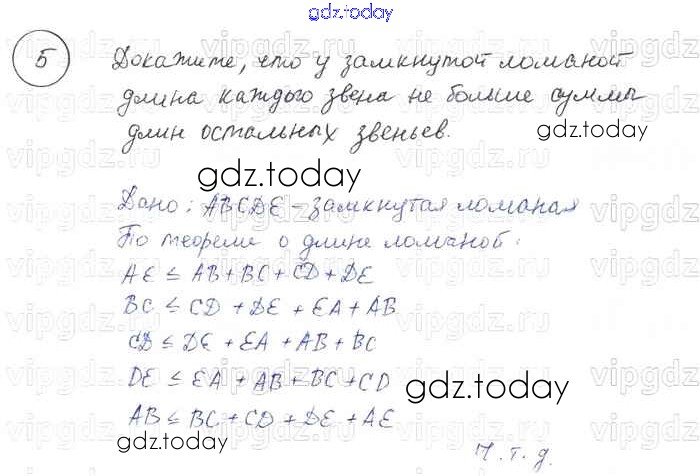 gdz.today
5 Докажите, что у замкнутой ломаной
длина каждого звена не больше суммы
длин остальных звеньев.
gdz.today
gdz.today
Дано: ABCDE - замкнутая ломаная
По теореме о длине ломаной:
AE ≤ AB + BC + CD + DE
BC ≤ CD + DE + EA + AB
CD ≤ DE + EA + AB + BC
DE ≤ EA + AB + BC + CD
gdz.today
AB ≤ BC + CD + DE + AE
gdz.today
Ч.т.д.